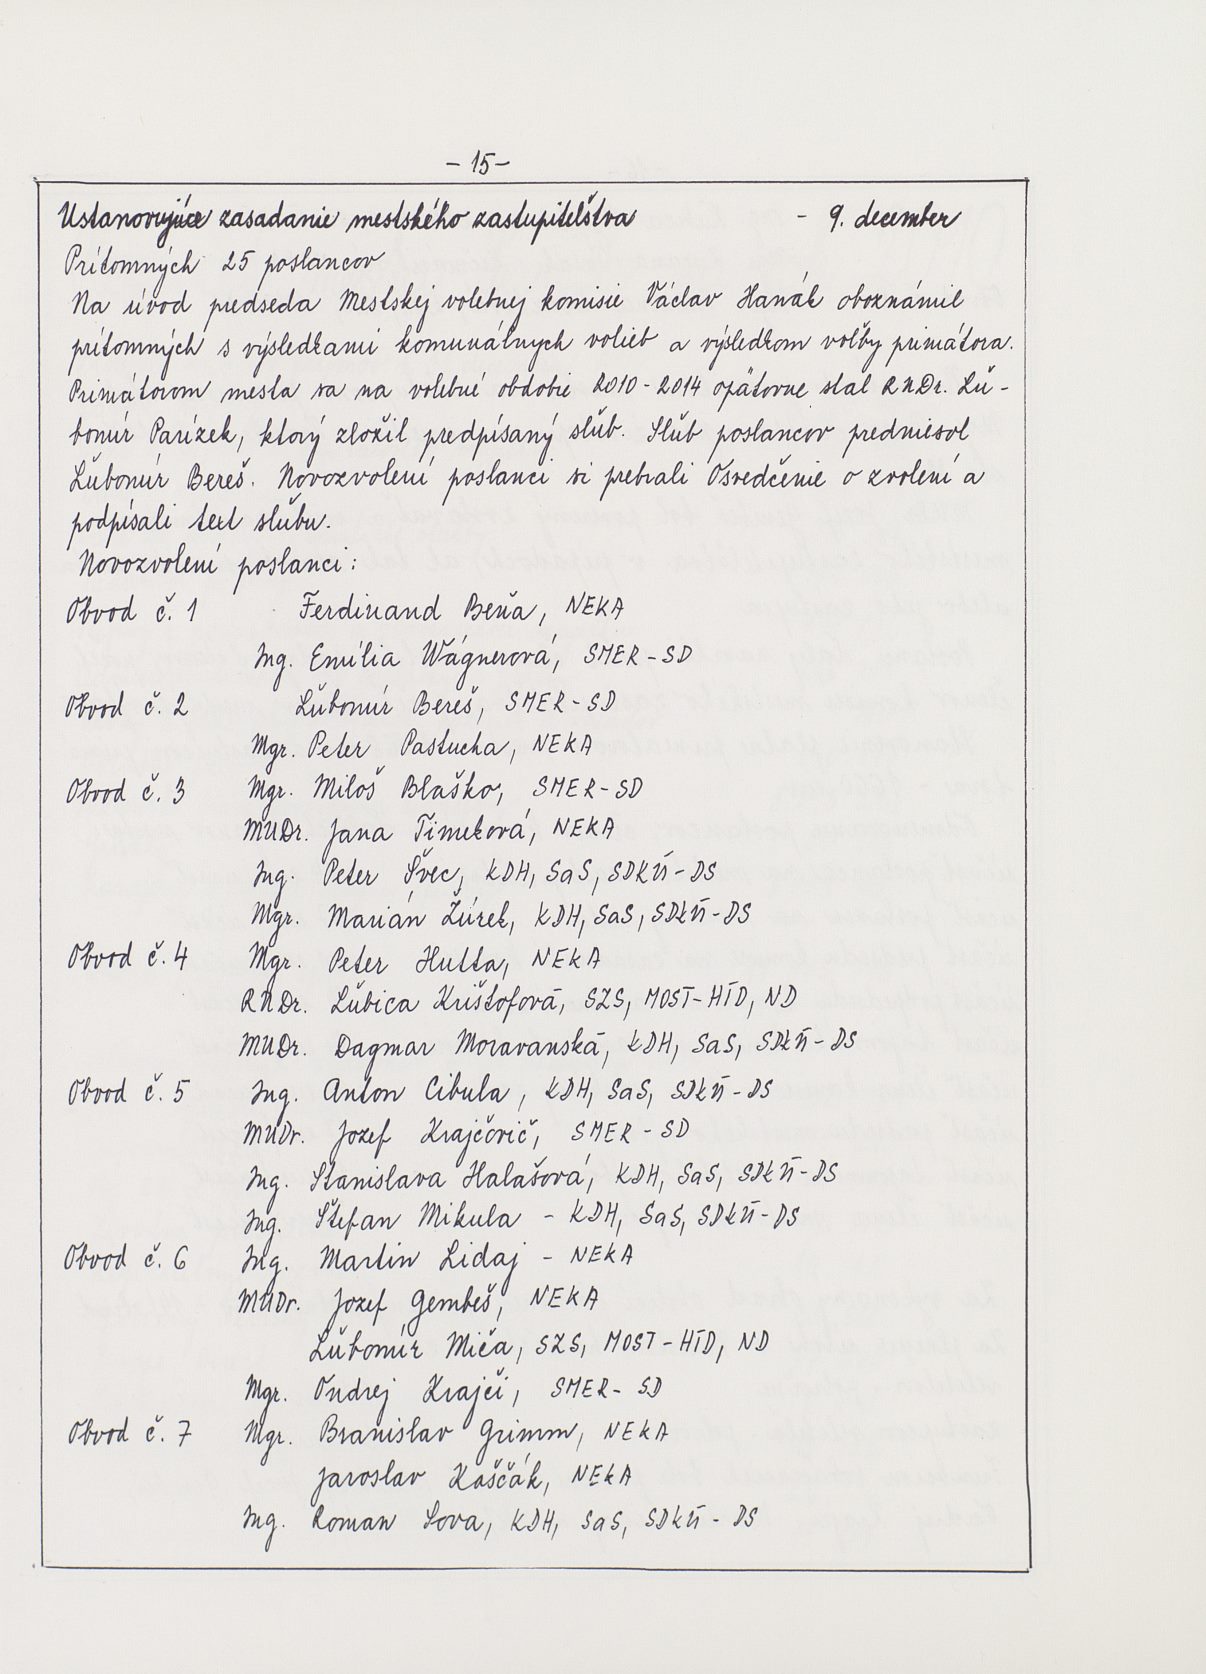 - 15 -
Ustanovujúce zasadanie mestského zastupiteľstva - 9. december
Prítomných 25 poslancov
Na úvod predseda Mestskej volebnej komisie Václav Hanák oboznámil
prítomných s výsledkami komunálnych volieb a výsledkom voľby primátora.
Primátorom mesta sa na volebné obdobie 2010 - 2014 opätovne stal RNDr. Ľu-
bomír Parízek, ktorý zložil predpísaný sľub. Sľub poslancov predniesol
Ľubomír Bereš. Novozvolení poslanci si prebrali Osvedčenie o zvolení a
podpísali text sľubu.
Novozvolení poslanci:
Obvod č. 1 Ferdinand Beňa, NEKA
Ing. Emília Wágnerová, SMER-SD
Obvod č. 2 Ľubomír Bereš, SMER-SD
Mgr. Peter Pastucha, NEKA
Obvod č. 3 Mgr. Miloš Blaško, SMER-SD
MUDr. Jana Timeková, NEKA
Ing. Peter Švec, KDH, SaS, SDKÚ-DS
Mgr. Marián Žúrek, KDH, SaS, SDKÚ-DS
Obvod č. 4 Mgr. Peter Hutta, NEKA
RNDr. Ľubica Krištofová, SZS, MOST-HÍD, ND
MUDr. Dagmar Moravanská, KDH, SaS, SDKÚ-DS
Obvod č. 5 Ing. Anton Cibula, KDH, SaS, SDKÚ-DS
MUDr. Jozef Krajčovič, SMER-SD
Ing. Stanislava Halašová, KDH, SaS, SDKÚ-DS
Ing. Štefan Mikula - KDH, SaS, SDKÚ-DS
Obvod č. 6 Ing. Martin Lidaj - NEKA
MUDr. Jozef Gembeš, NEKA
Ľubomír Miča, SZS, MOST-HÍD, ND
Mgr. Ondrej Krajči, SMER-SD
Obvod č. 7 Mgr. Branislav Grimm, NEKA
Jaroslav Kaščák, NEKA
Ing. Roman Sova, KDH, SaS, SDKÚ-DS